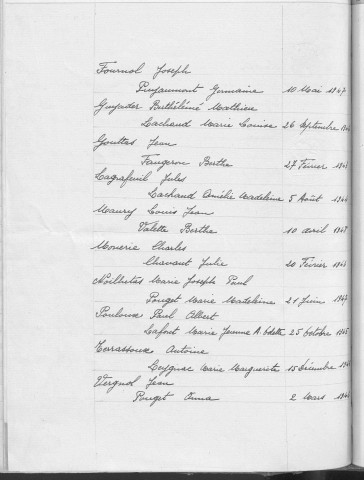 Fournol Joseph
Puyaumont Germaine 10 Mai 1947
Guyader Berthélémé Mathieu
Lachaud Marie Louise 26 Septembre
Gouttes Jean
Faugeron Berthe 27 Février
Lagrafeuil Jules
Lachaud Amélie Madeleine 5 Août
Maury Louis Jean
Valette Berthe 10 avril
Monerie Charles
Chavant Julie 20 Février
Noilhetas Marie Joseph Paul
Pouget Marie Madeleine 21 Juin
Pouloux Paul Albert
Lafont Marie Jeanne A. Odette 25 Octobre
Terrassoux Antoine
Leygnac Marie Marguerite 15 Décembre
Vergnol Jean
Pouget Anna 2 Mars